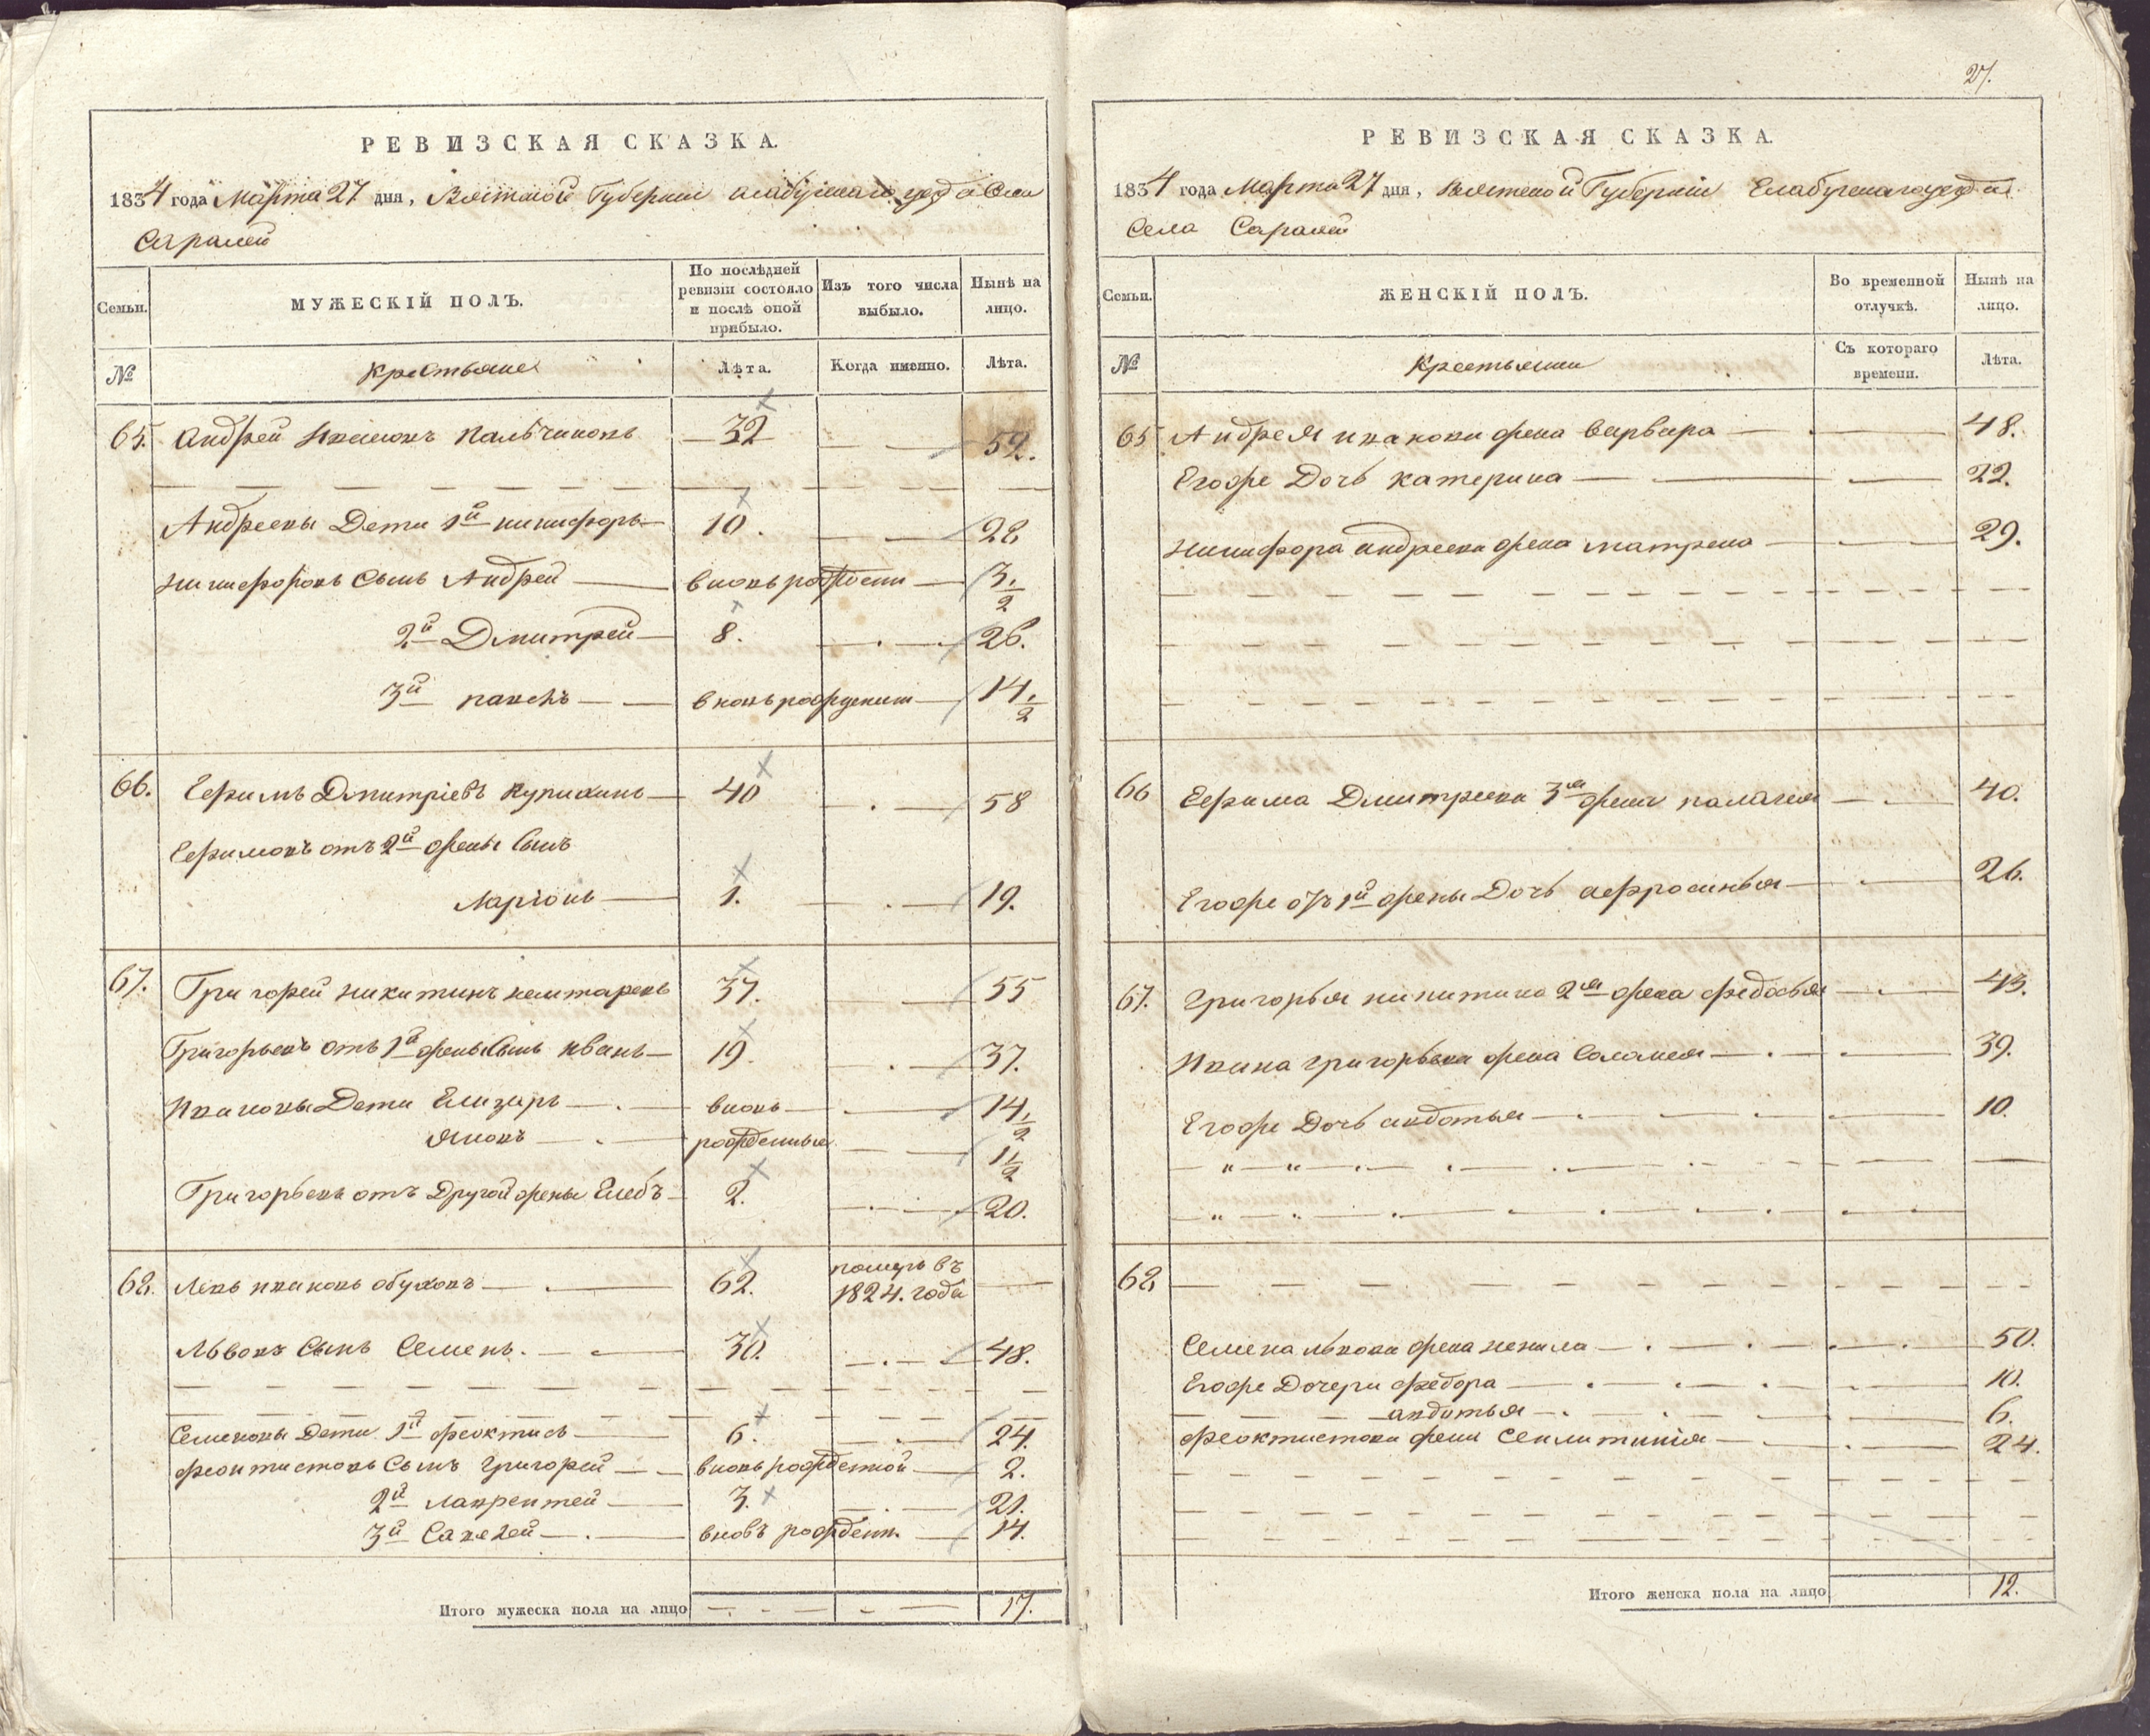 РЕВИЗСКАЯ СКАЗКА.
1834 года Марта 27 дня, Вятской Губернии елабужскаго уезда Села
Саралей
Семьи.
МУЖЕСКІЙ ПОЛЪ.
По послѣдней ревизіи состояло и послѣ оной прибыло.
Изъ того числа выбыло.
Нынѣ на лицо.
№ Крестьяне Лѣта. Когда именно. Лѣта.
65. Андрей Ивановъ Пальчиковъ 32 — 59.
Андреевы Дети 1й никифоръ 10. — 28
Никифоровъ Сынъ Андрей вновьрожден 3 1/2
2й Дмитрей 8. — 26.
3й павелъ вновьрожденит 14 1/2
66. Ефимъ Дмитріевъ Купихинъ 40 — 58
Ефимовъ отъ 2й жены Сынъ
Ларіонъ 1. — 19.
67. Григорей Никитинъ 37. — 55
Григорьевъ отъ 1й жены Сынъ Иванъ 19. — 37.
Ивановы Дети Елизаръ вновь 14 1/2
Яковъ рожденные 1 1/2
Григорьевъ отъ Другой жены Глебъ 2. — 20.
68. Левъ ивановъ обуховъ 62. померъ въ 1824. годе —
Львовъ Сынъ Семенъ. 30. — 48.
Семеновы Дети 1й феоктисъ 6. — 24.
феоктистовъ Сынъ Григорей вновьрожденной 2.
2й лаврентей 3. — 21.
3й Савелей вновъ рожден. 14.
Итого мужеска пола на лицо — 17.
27.
РЕВИЗСКАЯ СКАЗКА.
1834 года Марта 27 дня, Вятской Губерніи Елабугскагоуезда
Села Саралей
Семьи.
ЖЕНСКІЙ ПОЛЪ.
Во временной отлучкѣ.
Нынѣ на лицо.
№ Крестьянки Съ котораго времени. Лѣта.
65 Андрея иванова жена варвара — 48.
Егоже Дочь катерина — 22.
Никифора андреева жена матрена — 29.
66 Ефима Дмитреева 3я жена палагея — 40.
Егоже отъ 1й жены Дочь афросинья — 26.
67. Григорья никитина 2я жена федосья — 43.
Ивана григорьева жена Соломея — 39.
Егоже Дочь авдотья — 10.
68
Семена львова жена ненила — 50.
Егоже Дочери федора — 10.
авдотья — 6.
феоктистова жена Секлитинія — 24.
Итого женска пола на лицо 12.